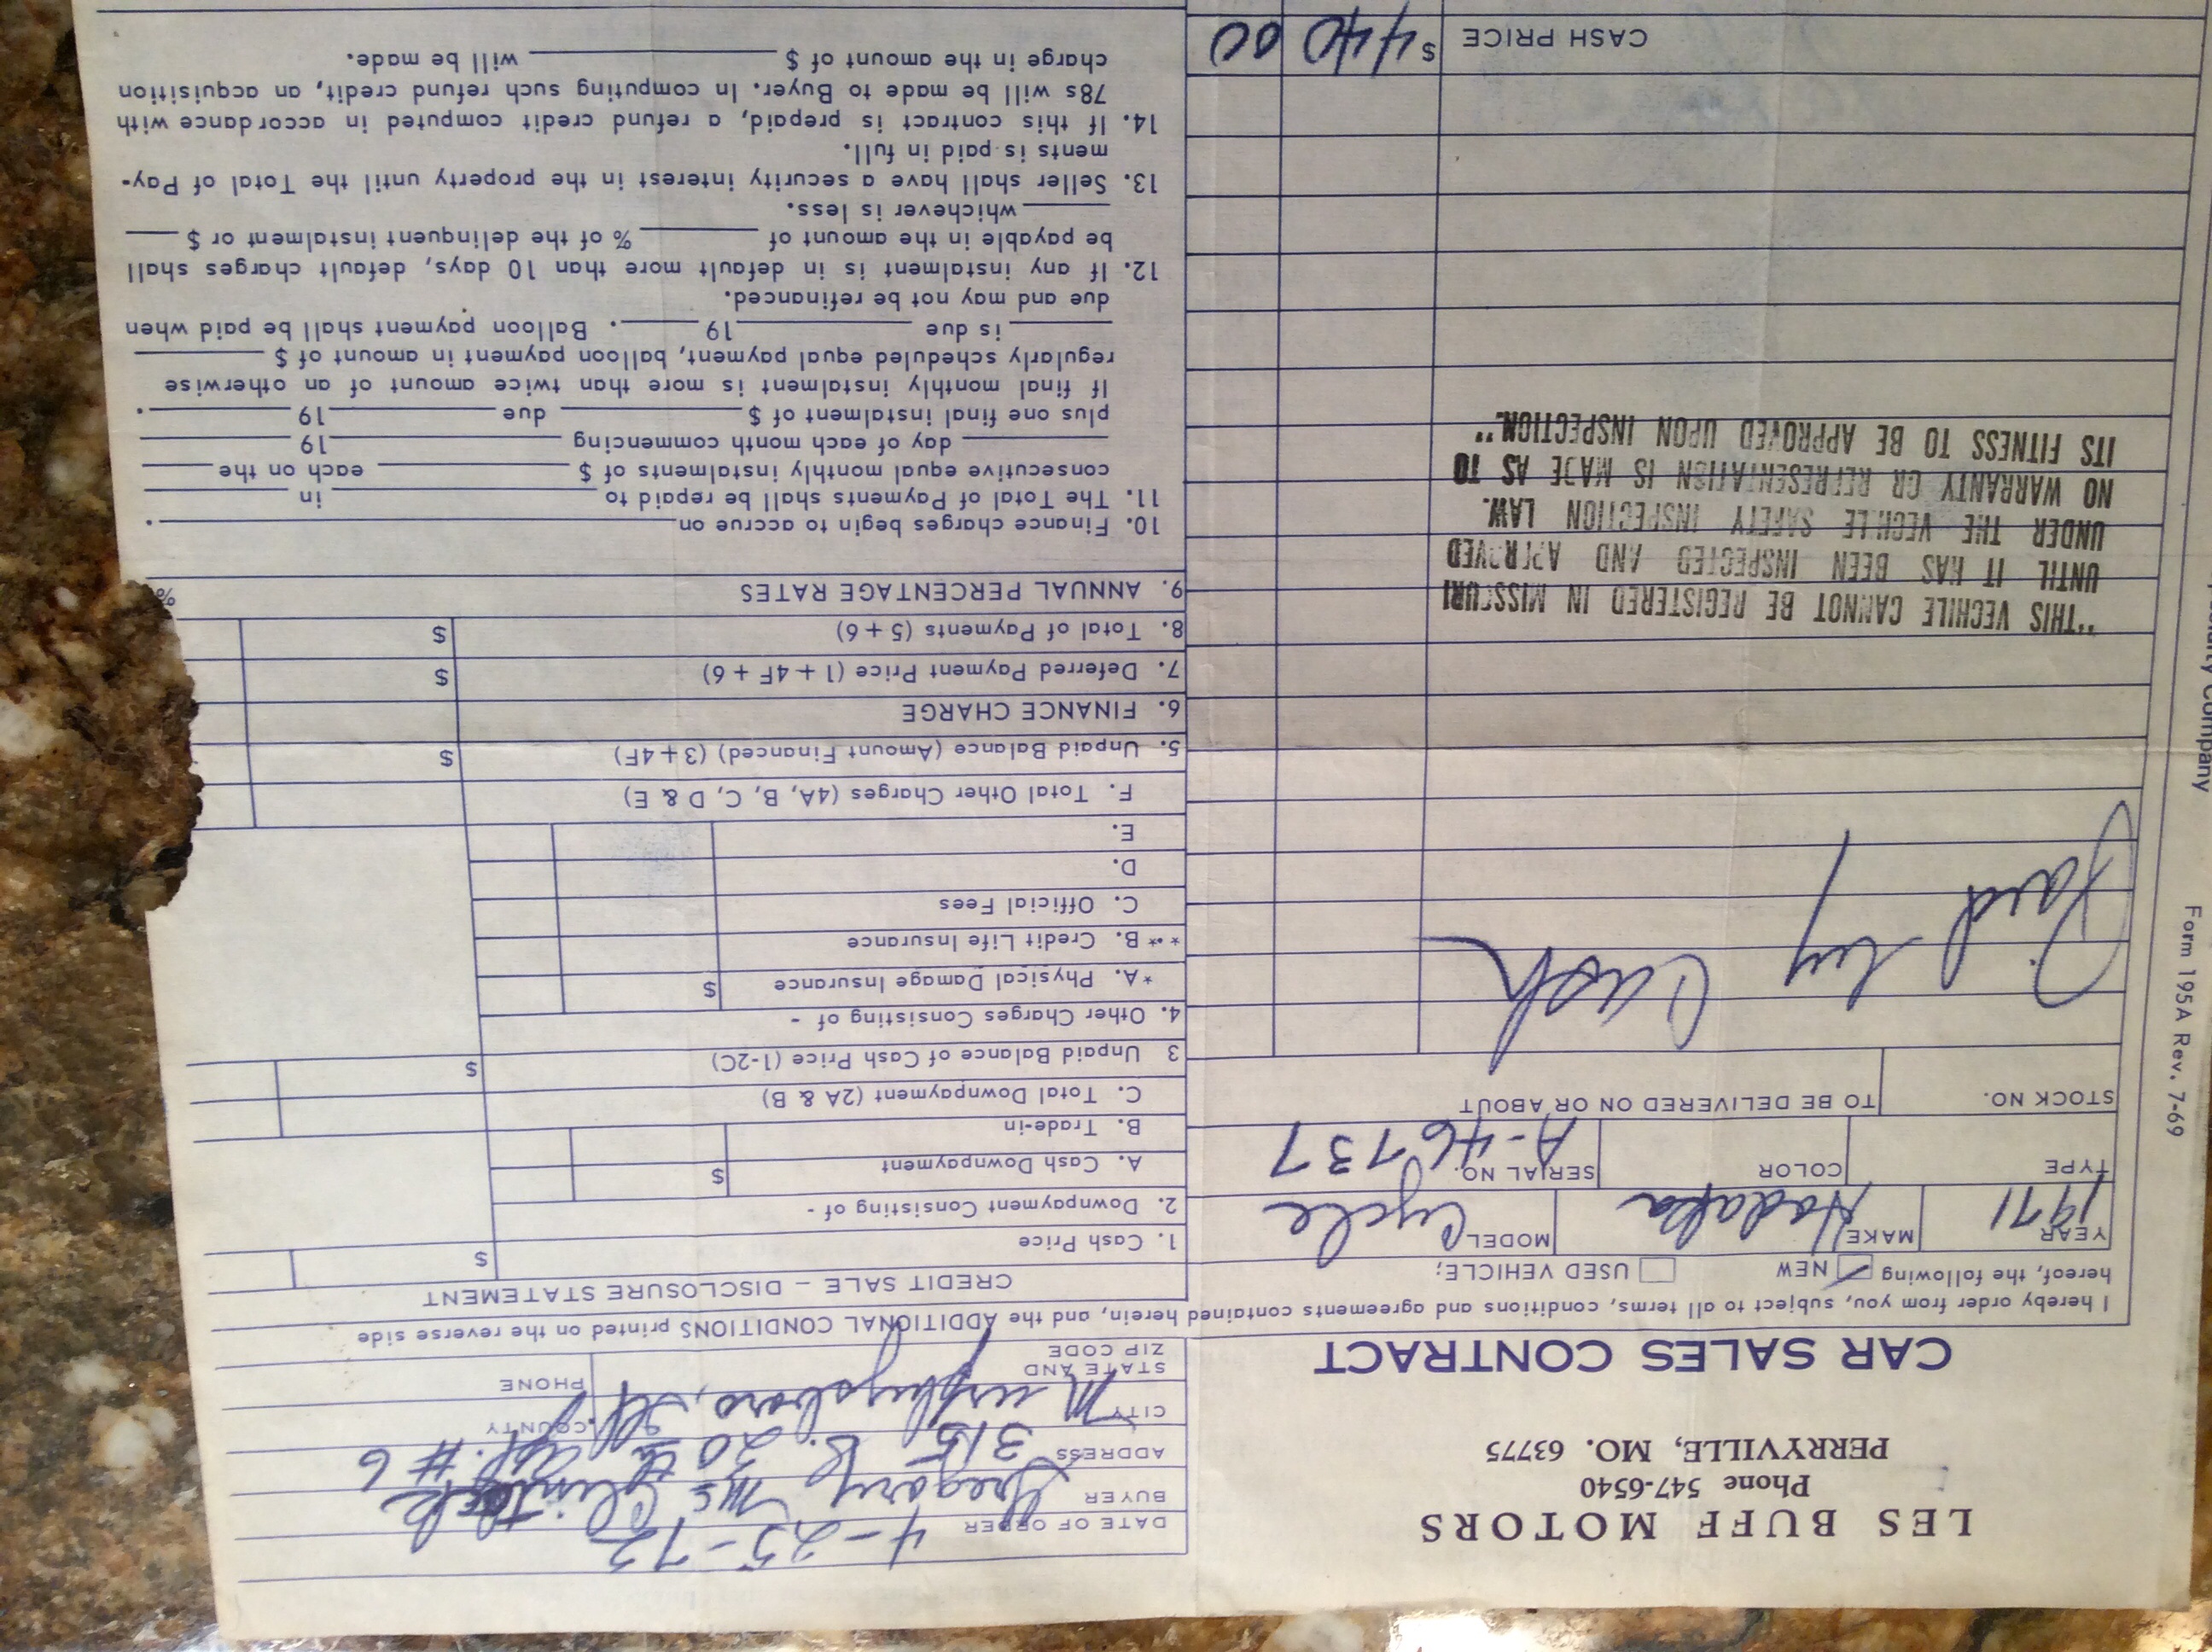 LES BUFF MOTORS
Phone 547-6540
PERRYVILLE, MO. 63775
CAR SALES CONTRACT
DATE OF ORDER 4-25-72
BUYER Gregory Mc Clintock
ADDRESS 315 S. 20th Apt. #6
CITY Murphysboro, Ill COUNTY
STATE AND ZIP CODE PHONE
I hereby order from you, subject to all terms, conditions and agreements contained herein, and the ADDITIONAL CONDITIONS printed on the reverse side
hereof, the following NEW USED VEHICLE;
YEAR 1971 MAKE Hodaka MODEL Cycle
TYPE COLOR SERIAL NO. A-46737
STOCK NO. TO BE DELIVERED ON OR ABOUT
Paid by Cash
"THIS VECHILE CANNOT BE REGISTERED IN MISSOURI
UNTIL IT HAS BEEN INSPECTED AND APPROVED
UNDER THE VECHILE SAFETY INSPECTION LAW.
NO WARRANTY OR REPRESENTATION IS MADE AS TO
ITS FITNESS TO BE APPROVED UPON INSPECTION."
CASH PRICE $ 440 00
CREDIT SALE – DISCLOSURE STATEMENT
1. Cash Price $
2. Downpayment Consisting of -
A. Cash Downpayment $
B. Trade-in
C. Total Downpayment (2A & B)
3 Unpaid Balance of Cash Price (1-2C) $
4. Other Charges Consisting of -
*A. Physical Damage Insurance $
**B. Credit Life Insurance
C. Official Fees
D.
E.
F. Total Other Charges (4A, B, C, D & E)
5. Unpaid Balance (Amount Financed) (3+4F) $
6. FINANCE CHARGE
7. Deferred Payment Price (1+4F+6) $
8. Total of Payments (5+6) $
9. ANNUAL PERCENTAGE RATES %
10. Finance charges begin to accrue on .
11. The Total of Payments shall be repaid to in
consecutive equal monthly instalments of $ each on the
day of each month commencing 19
plus one final instalment of $ due 19 .
If final monthly instalment is more than twice amount of an otherwise
regularly scheduled equal payment, balloon payment in amount of $
is due 19 . Balloon payment shall be paid when
due and may not be refinanced.
12. If any instalment is in default more than 10 days, default charges shall
be payable in the amount of % of the delinquent instalment or $
whichever is less.
13. Seller shall have a security interest in the property until the Total of Pay-
ments is paid in full.
14. If this contract is prepaid, a refund credit computed in accordance with
78s will be made to Buyer. In computing such refund credit, an acquisition
charge in the amount of $ will be made.
Form 195A Rev. 7-69
Company